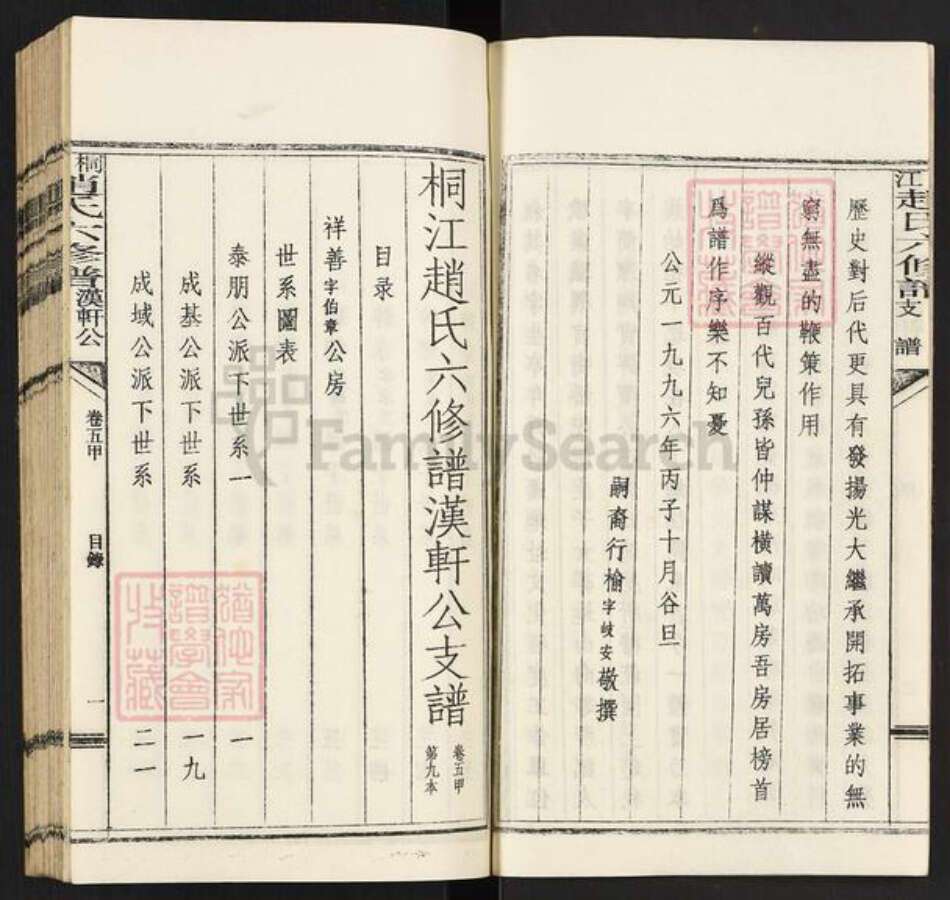 江趙氏六修譜支譜
歷史對后代更具有發揚光大繼承開拓事業的無
窮無盡的鞭策作用
縱觀百代兒孫皆仲謀橫讀萬房吾房居榜首
爲譜作序樂不知憂
公元一九九六年丙子十月谷旦
嗣裔行榆字岐安敬撰
桐江趙氏六修譜漢軒公支譜
卷五甲
第九本
目录
祥善字伯章公房
世系圖表
泰朋公派下世系一 一
成基公派下世系 一九
成域公派下世系 二一
桐趙氏六修譜漢軒公
卷五甲
目錄
一
譜學會
收藏
FamilySearch